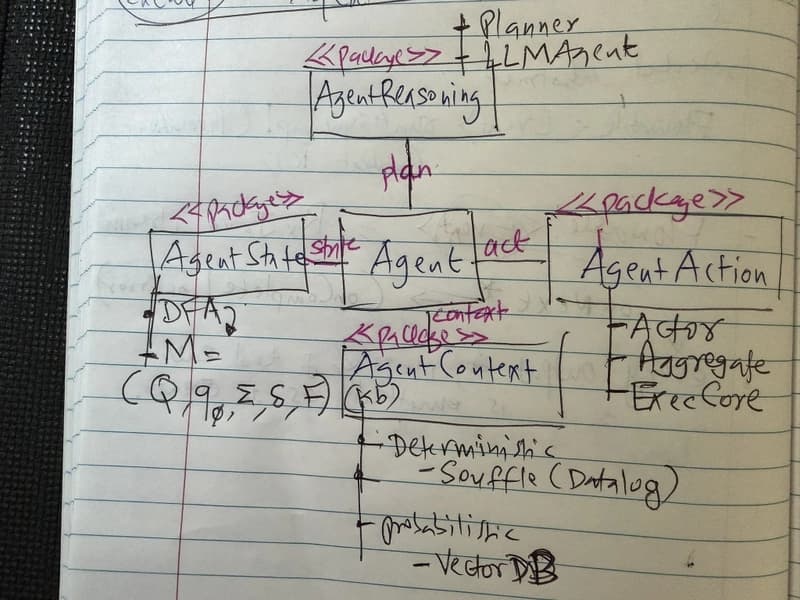 + Planner
<<package>> + LLMAgent
AgentReasoning
plan
<<package>>
<<package>>
AgentState
state
Agent
act
AgentAction
DFA
context
M =
<<package>>
(Q, q₀, Σ, δ, F)
AgentContext
(Kb)
Actor
Aggregate
ExecCore
Deterministic
- Souffle (Datalog)
probabilistic
- VectorDB